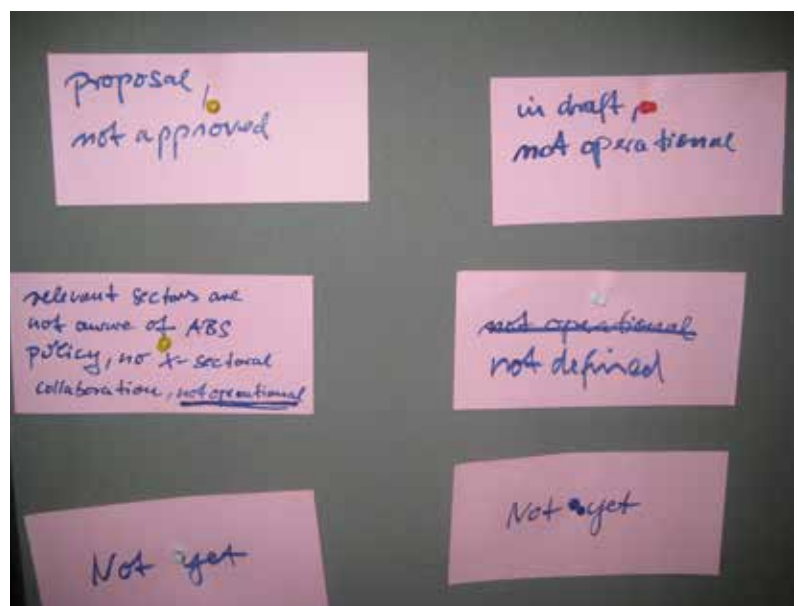 proposal,
not approved
in draft,
not operational
relevant sectors are
not aware of ABS
policy, no x-sectoral
collaboration, not operational
not operational
not defined
Not yet
Not yet